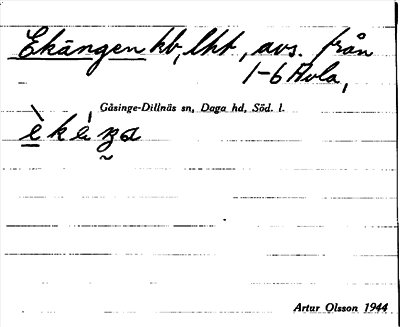 Ekängen hb, lht, avs. från
1-6 Avla,
Gåsinge-Dillnäs sn, Daga hd, Söd. l.
Artur Olsson 1944